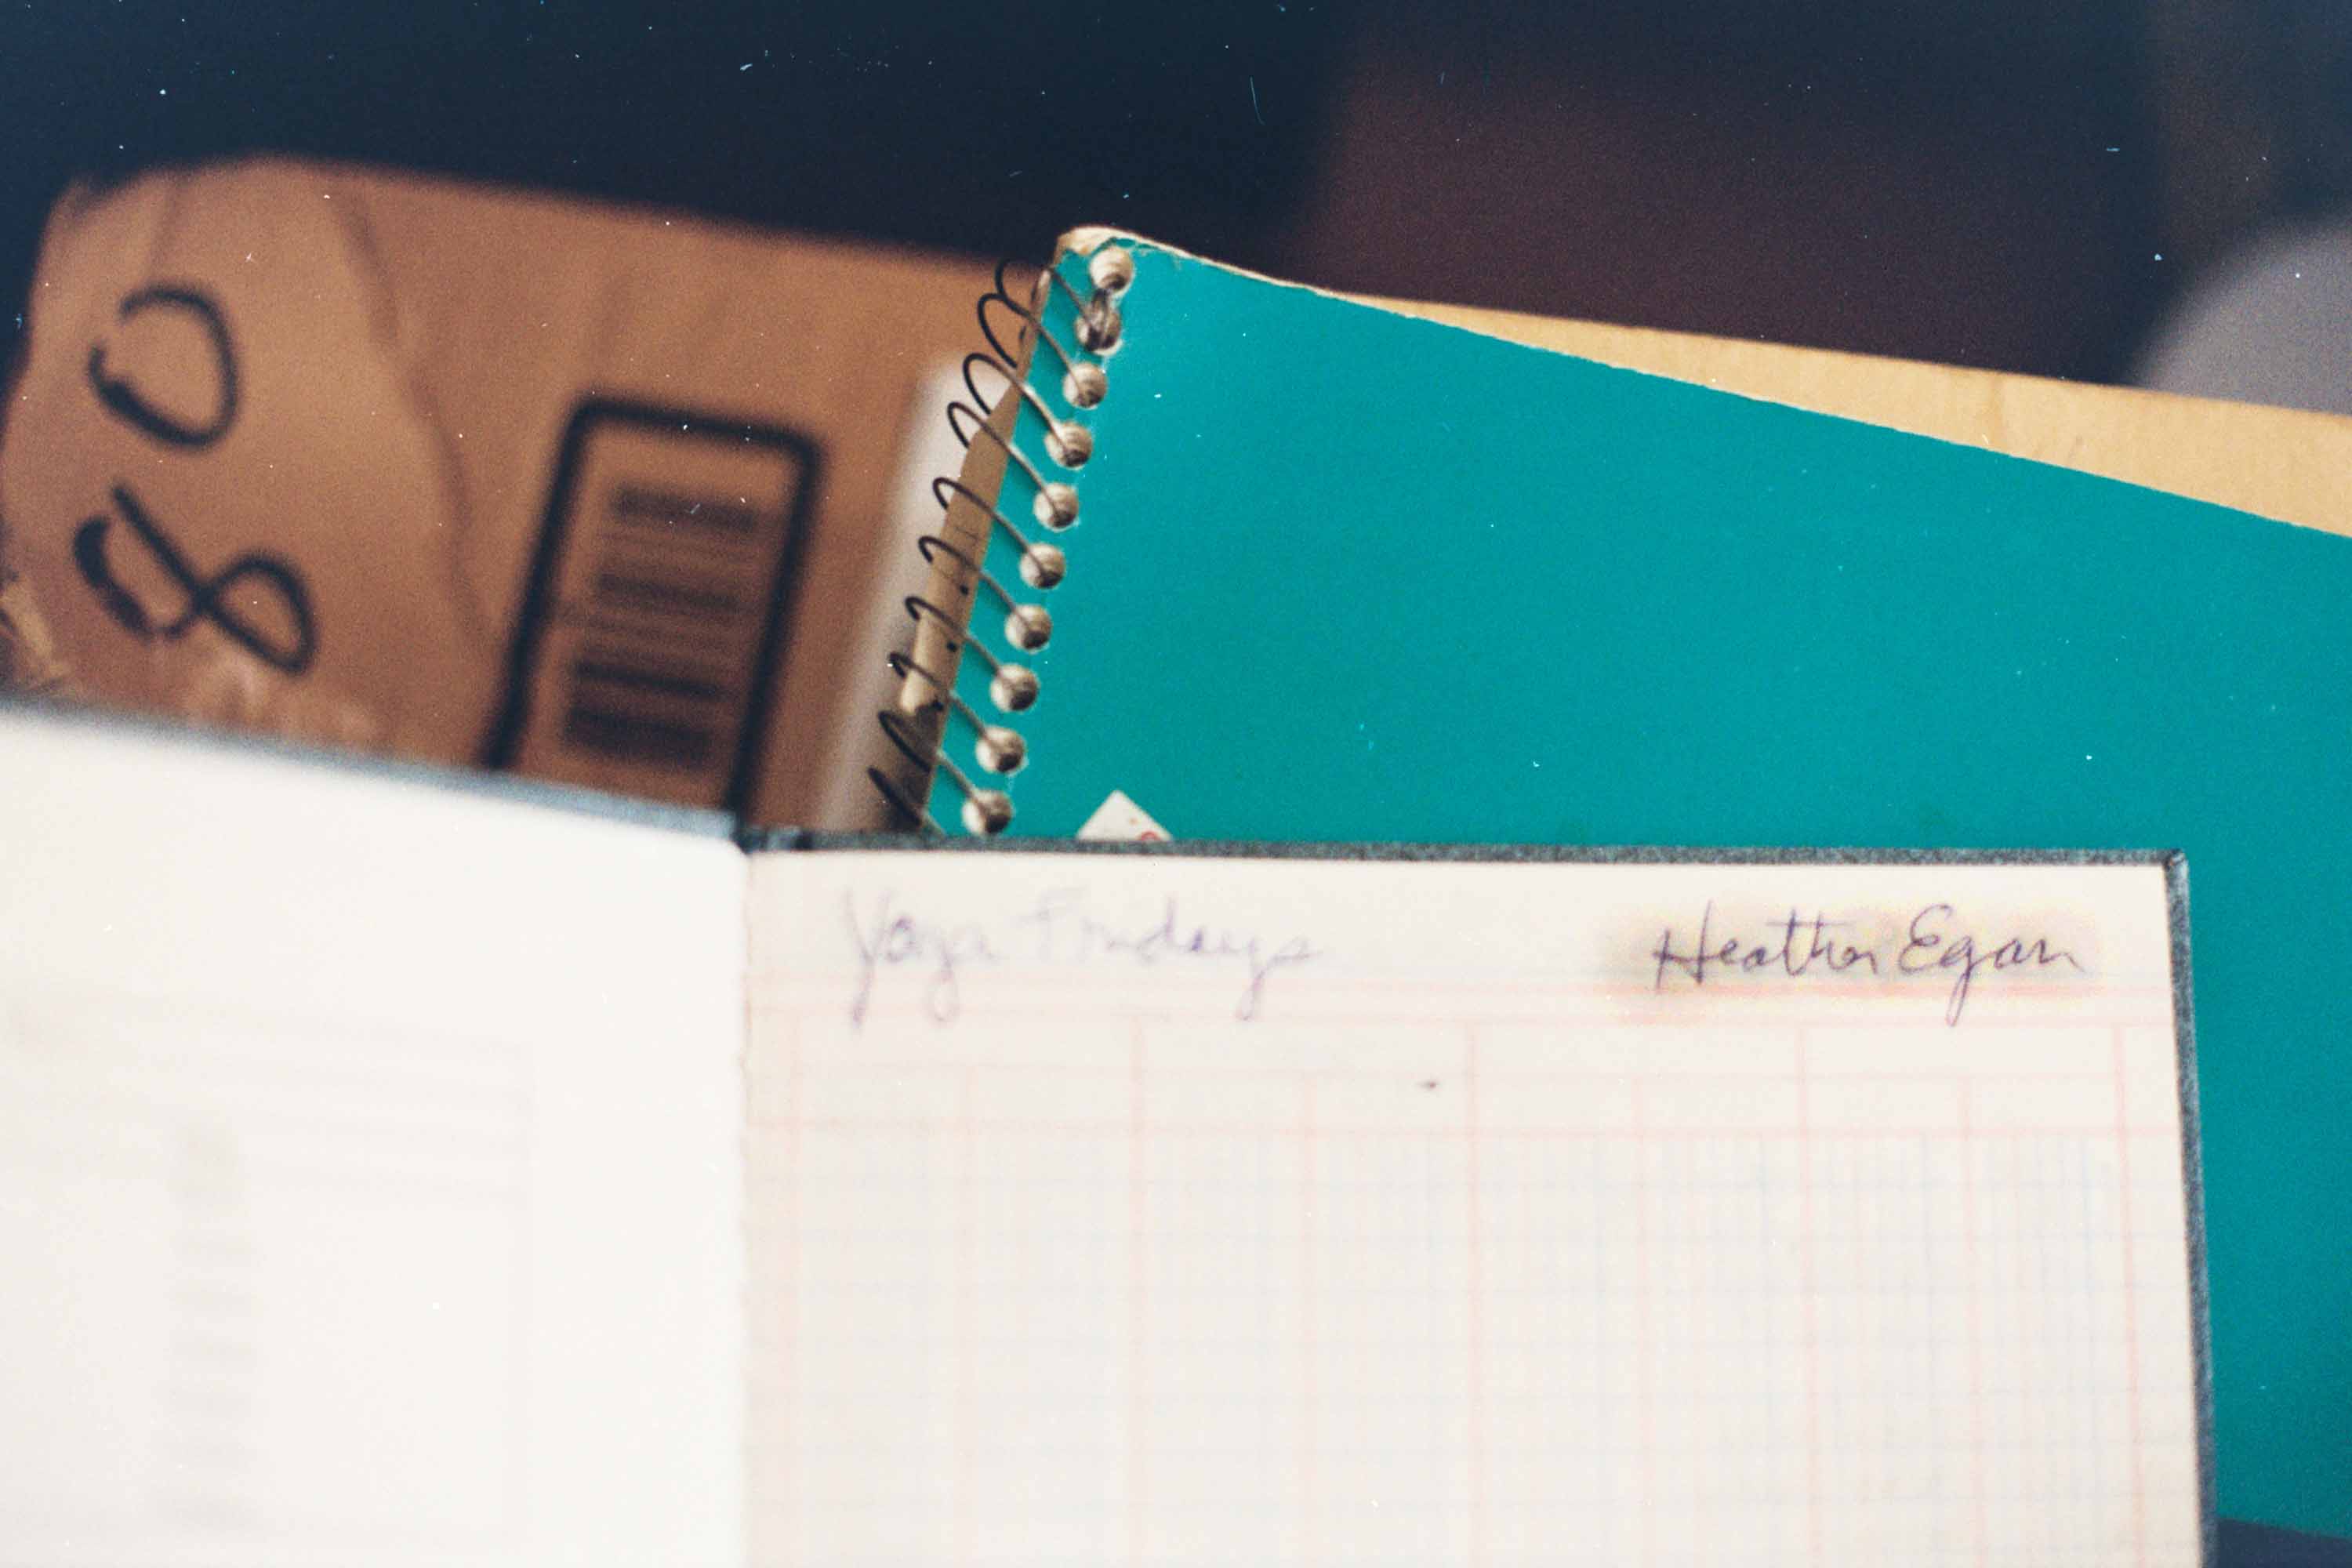 80
Yoga Fridays Heather Egan